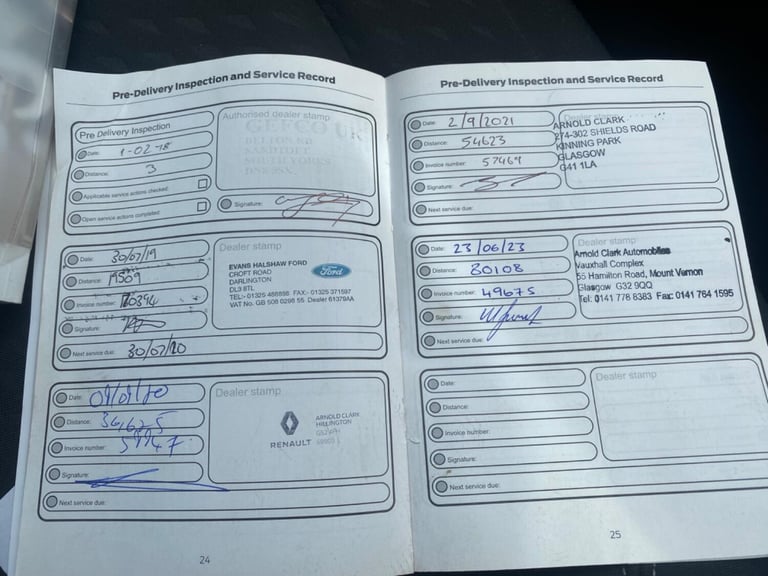 Pre-Delivery Inspection and Service Record
Pre Delivery Inspection
Date: 1-02-18
Distance: 3
Applicable service actions checked:
Open service actions completed:
Authorised dealer stamp
GEFCO UK
BELTON RD
SANDTOFT
SOUTH YORKS
Signature:
Date: 30/07/19
Distance: 19509
Invoice number:
Signature:
Next service due: 30/07/20
Dealer stamp
EVANS HALSHAW FORD
CROFT ROAD
DARLINGTON
DL3 8TL
TEL:- 01325 488898 FAX:- 01325 371597
VAT No. GB 508 0298 55 Dealer 61379AA
Ford
Date:
Distance:
Invoice number: 59947
Signature:
Next service due:
Dealer stamp
RENAULT
ARNOLD CLARK
HILLINGTON
24
Pre-Delivery Inspection and Service Record
Date: 2/9/2021
Distance: 54623
Invoice number: 57469
Signature:
Next service due:
Dealer stamp
ARNOLD CLARK
274-302 SHIELDS ROAD
KINNING PARK
GLASGOW
G41 1LA
Date: 23/06/23
Distance: 80108
Invoice number: 49675
Signature:
Next service due:
Dealer stamp
Arnold Clark Automobiles
Vauxhall Complex
55 Hamilton Road, Mount Vernon
Glasgow G32 9QQ
Tel: 0141 778 8383 Fax: 0141 764 1595
Date:
Distance:
Invoice number:
Signature:
Next service due:
Dealer stamp
25